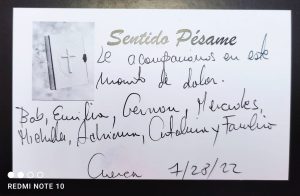 Sentido Pésame
Le acompañamos en este
momento de dolor.
Bob, Emilia, Germán, Mercedes,
Michelle, Adriana, Catalina y Familia
Cuenca 7/28/22
REDMI NOTE 10